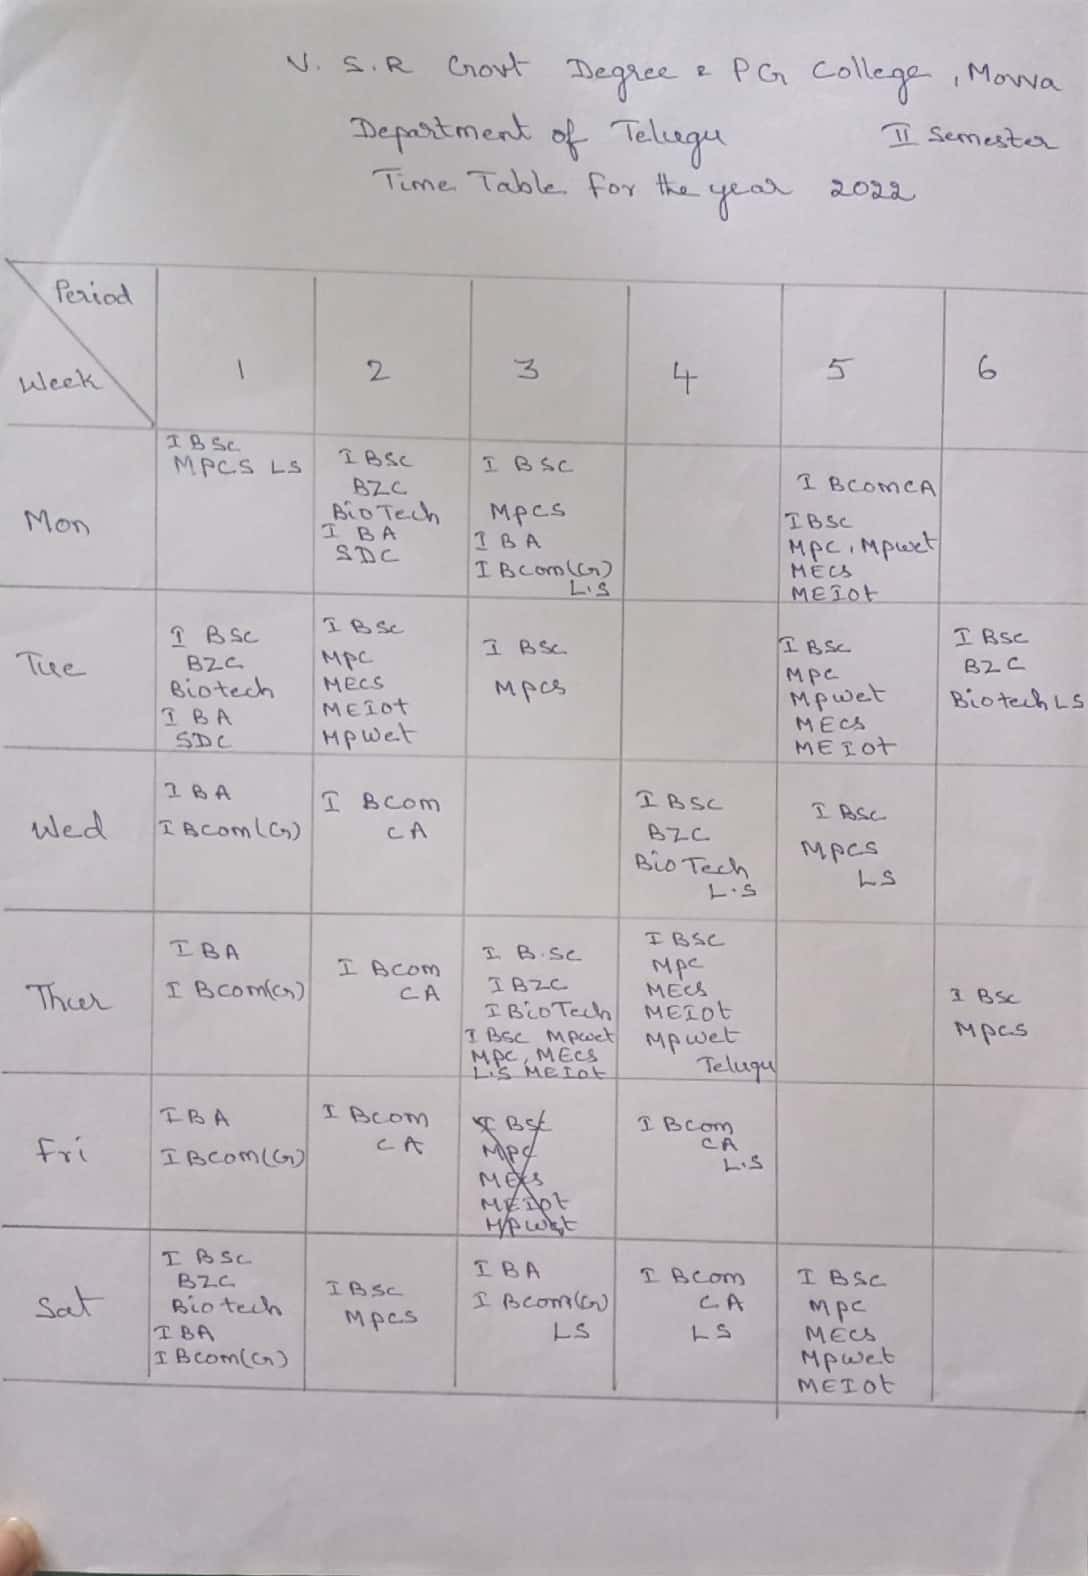 V. S.R Govt Degree & PG College, Movva
Department of Telugu II Semester
Time Table for the year 2022
Period
Week
1
2
3
4
5
6
Mon
I BSC
MPCS LS
I BSC
BZC
BioTech
I BA
SDC
I BSC
MPCS
I BA
I BCom(Gr)
L.S
I BComCA
I BSC
MPC, Mpwet
MECS
MEIot
Tue
I BSC
BZC
Biotech
I BA
SDC
I BSC
MPC
MECS
MEIOt
MpWet
I BSC
MPCS
I BSC
MPC
Mpwet
MECS
MEIOt
I BSC
BZC
Biotech LS
Wed
I BA
I BCom(Gr)
I BCom
CA
I BSC
BZC
BioTech
L.S
I BSC
MPCS
LS
Thur
I BA
I BCom(Gr)
I BCom
CA
I B.SC
I BZC
I BioTech
I BSC Mpwet
MPC, MECS
L.S MEIot
I BSC
MPC
MECS
MEIOt
Mpwet
Telugu
I BSC
MPCS
Fri
I BA
I BCom(Gr)
I BCom
CA
I BSC
MPC
MECS
MEIOt
Mpwet
I BCom
CA
L.S
Sat
I BSC
BZC
Biotech
I BA
I BCom(Gr)
I BSC
MPCS
I BA
I BCom(Gr)
LS
I BCom
CA
LS
I BSC
MPC
MECS
Mpwet
MEIOt